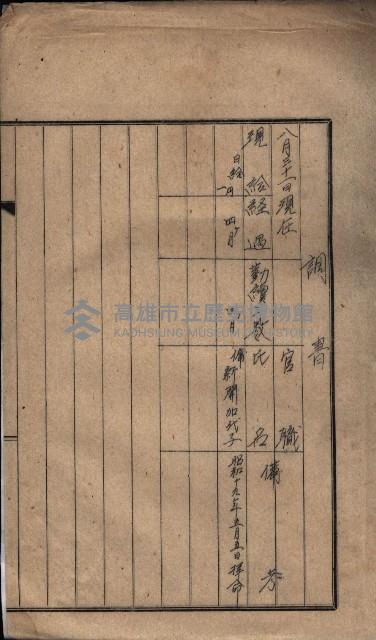 調書
八月三十一日現在
官職
現給
経過
勤続数
氏名
備考
日給
一円
四ヶ月
四ヶ月
傭 新開加代子
昭和十九年五月五日採命
高雄市立歷史博物館
KAOHSIUNG MUSEUM OF HISTORY